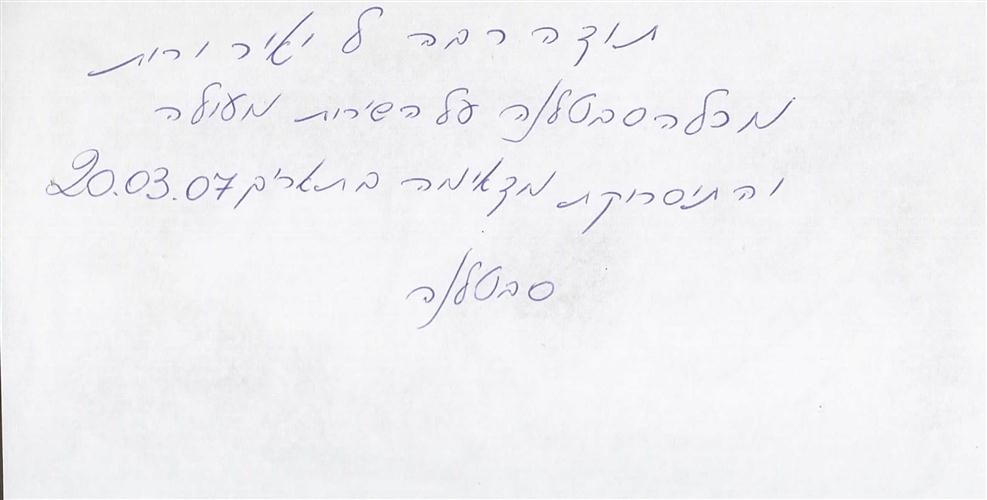 תודה רבה ל יאיר ורית
מכלה סבטלנה על השירות מעולה
והתיסרוקת מדאימה בתאריך 20.03.07
סבטלנה